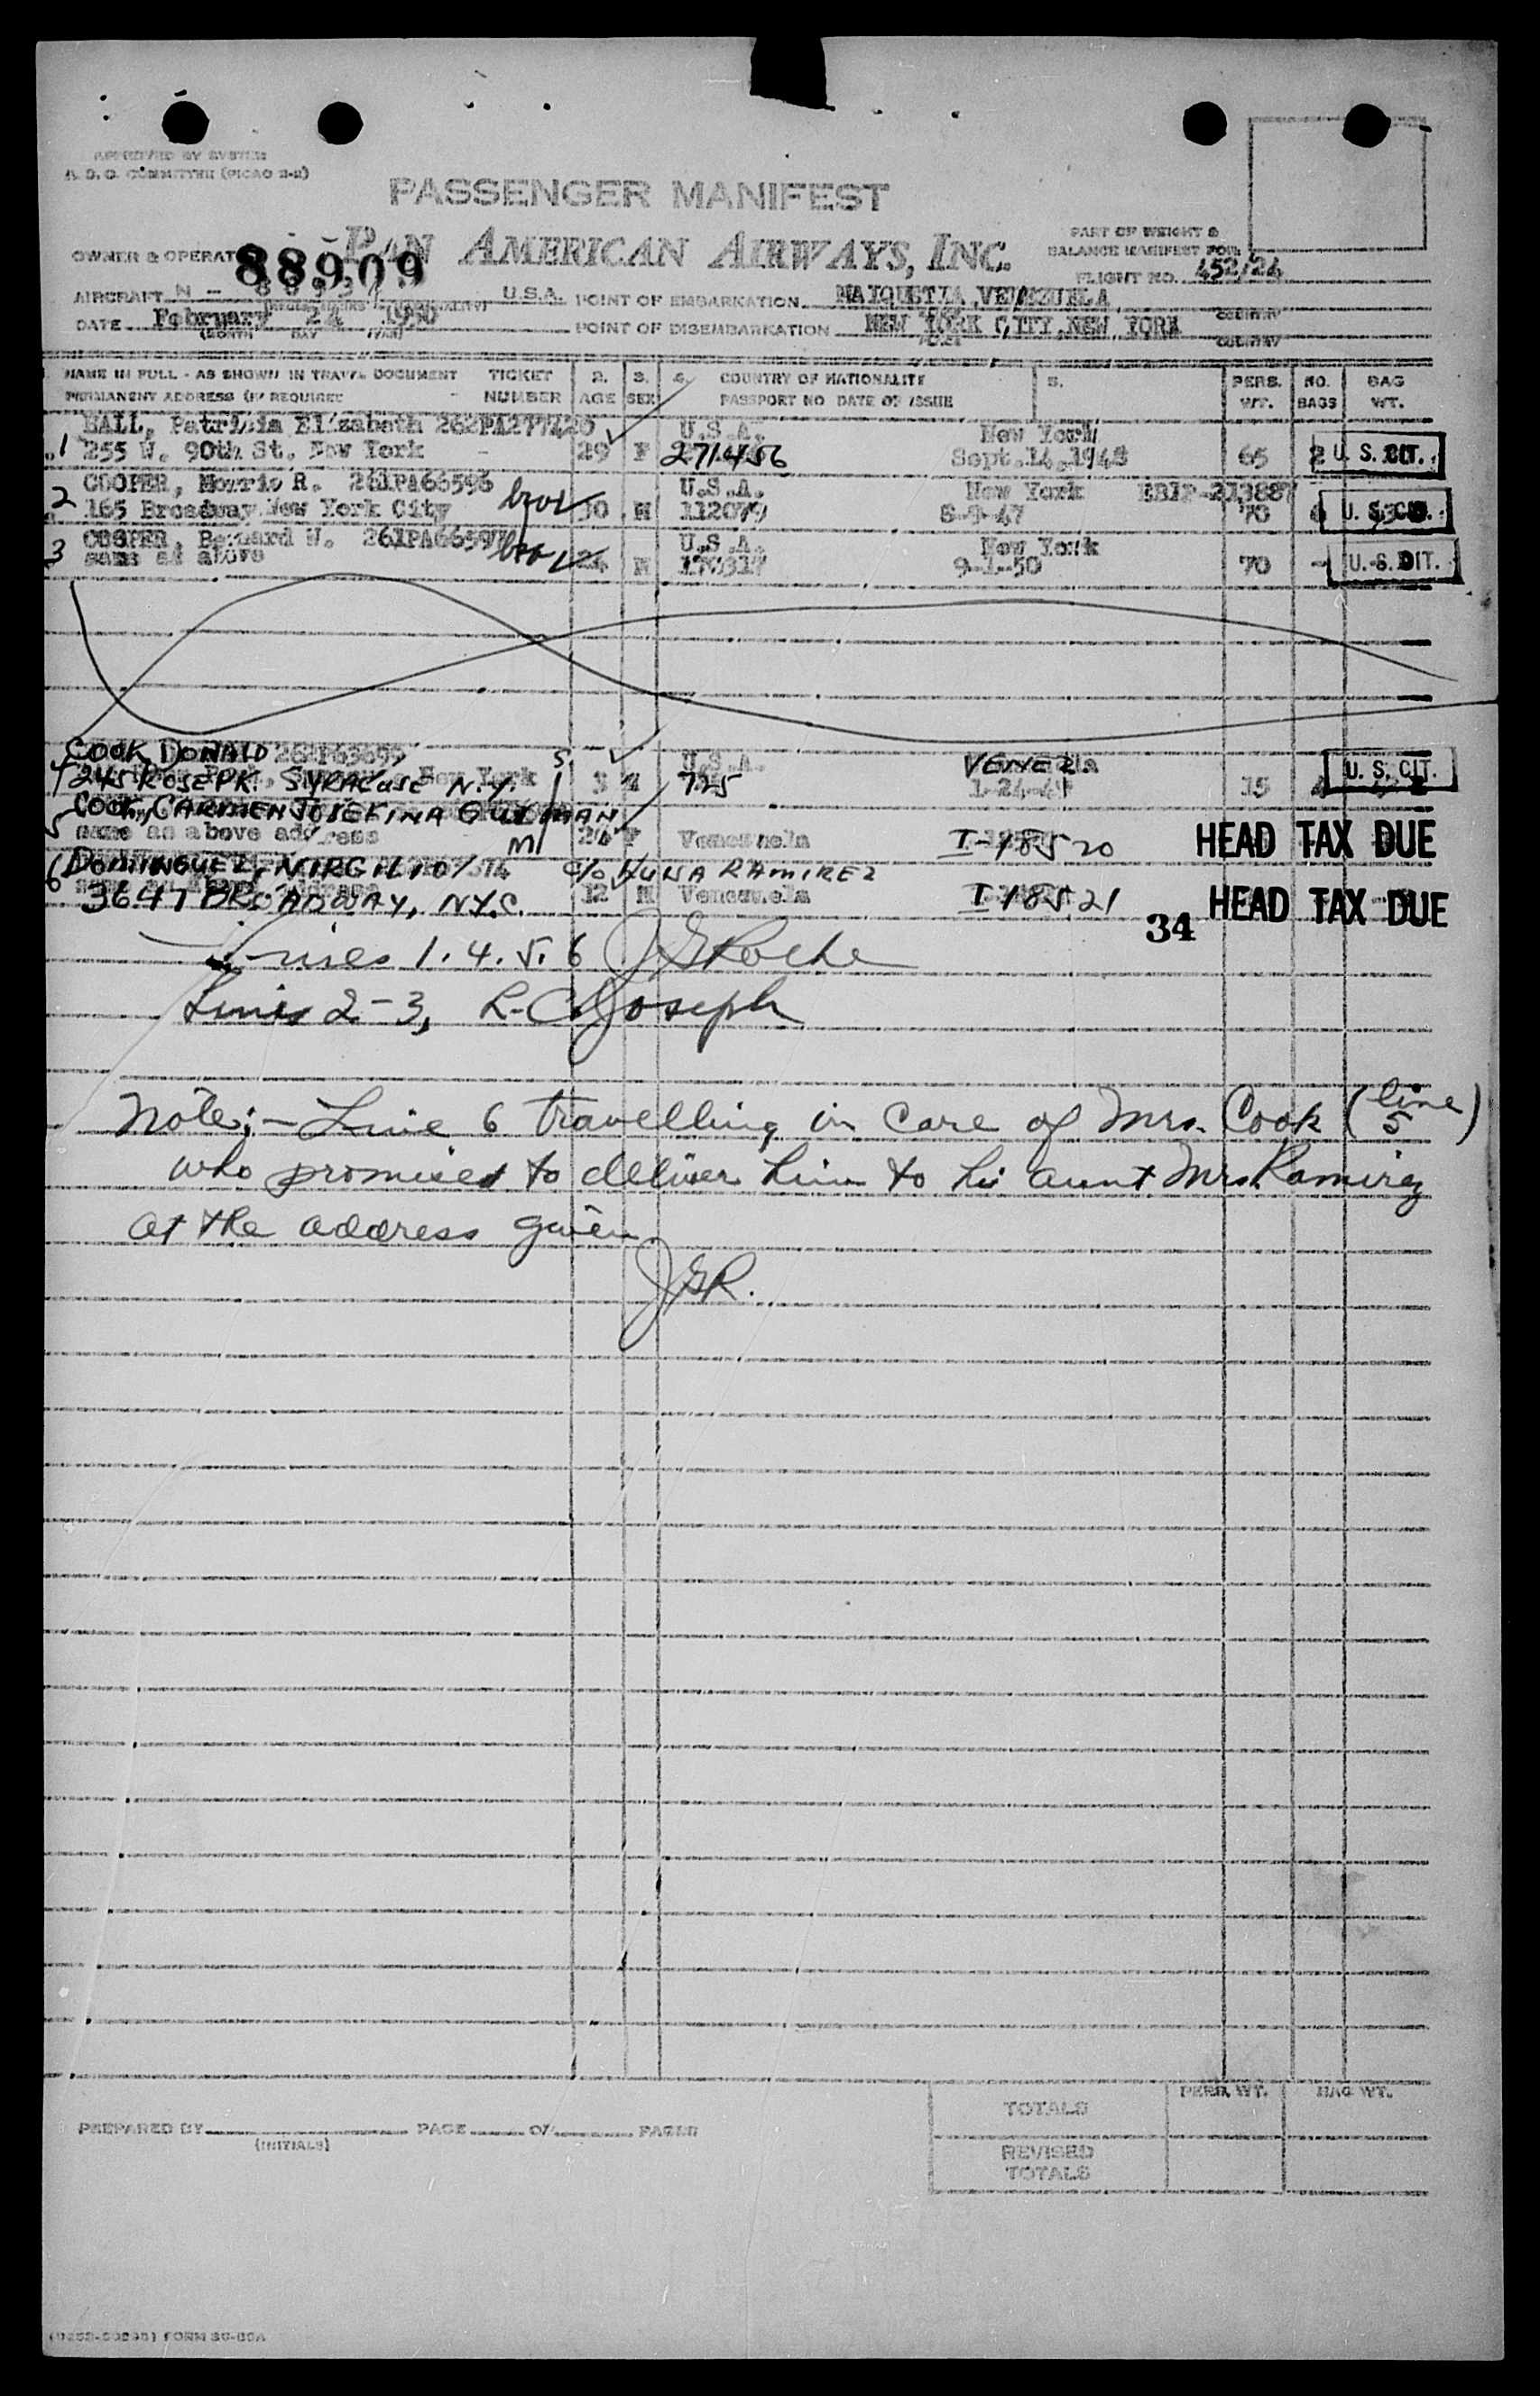 APPROVED BY SYSTEM
COMMITTEE (PICAO 2-2)
PASSENGER MANIFEST
PART OF WEIGHT &
BALANCE MANIFEST FOR
OWNER & OPERAT
88909
PAN AMERICAN AIRWAYS, INC.
FLIGHT NO. 452/24
AIRCRAFT N - U.S.A. POINT OF EMBARKATION MAIQUETIA, VENEZUELA
COUNTRY
DATE February 24 1950 POINT OF DISEMBARKATION NEW YORK CITY, NEW YORK
(MONTH DAY YEAR) COUNTRY
NAME IN FULL - AS SHOWN IN TRAVEL DOCUMENT TICKET 2. 3. 4. COUNTRY OF NATIONALITY 5. PERS. NO. BAG
PERMANENT ADDRESS (IF REQUIRED NUMBER AGE SEX PASSPORT NO DATE OF ISSUE WT. BAGS WT.
HALL, Patricia Elizabeth 262PA277420 U.S.A. New York
1 255 W. 90th St. New York 29 F 271456 Sept.14,1948 65 2 U. S. CIT.
COOPER, Morris R. 261PA66596 U.S.A. New York
2 165 Broadway New York City 30 M 112079 8-9-47 70 U. S. CIT.
COOPER, Bernard W. 261PA66597 U.S.A. New York
3 same as above 24 M 170317 9-1-50 70 - U. S. CIT.
COOK, DONALD S. U.S.A. VENEZ.
4 245 ROSE PK. SYRACUSE N.Y. 3 725 1-24-49 15 U. S. CIT.
COOK, CARMEN JOSEFINA GUZMAN
5 same as above address M 26 F Venezuela I-18520 HEAD TAX DUE
6 DOMINGUEZ, VIRGILIO C/O RAMIREZ
3647 BROADWAY, N.Y.C. 12 M Venezuela I 18521 HEAD TAX DUE
34
Lines 1. 4. 5. 6 JGRoche
Lines 2-3, R. C. Joseph
Note:- Line 6 travelling in care of Mrs. Cook (line 5)
who promised to deliver him to his aunt Mrs. Ramirez
at the address given.
JGR.
TOTALS PERS. WT. BAG WT.
PREPARED BY PAGE OF PAGES
(INITIALS)
REVISED
TOTALS
FORM